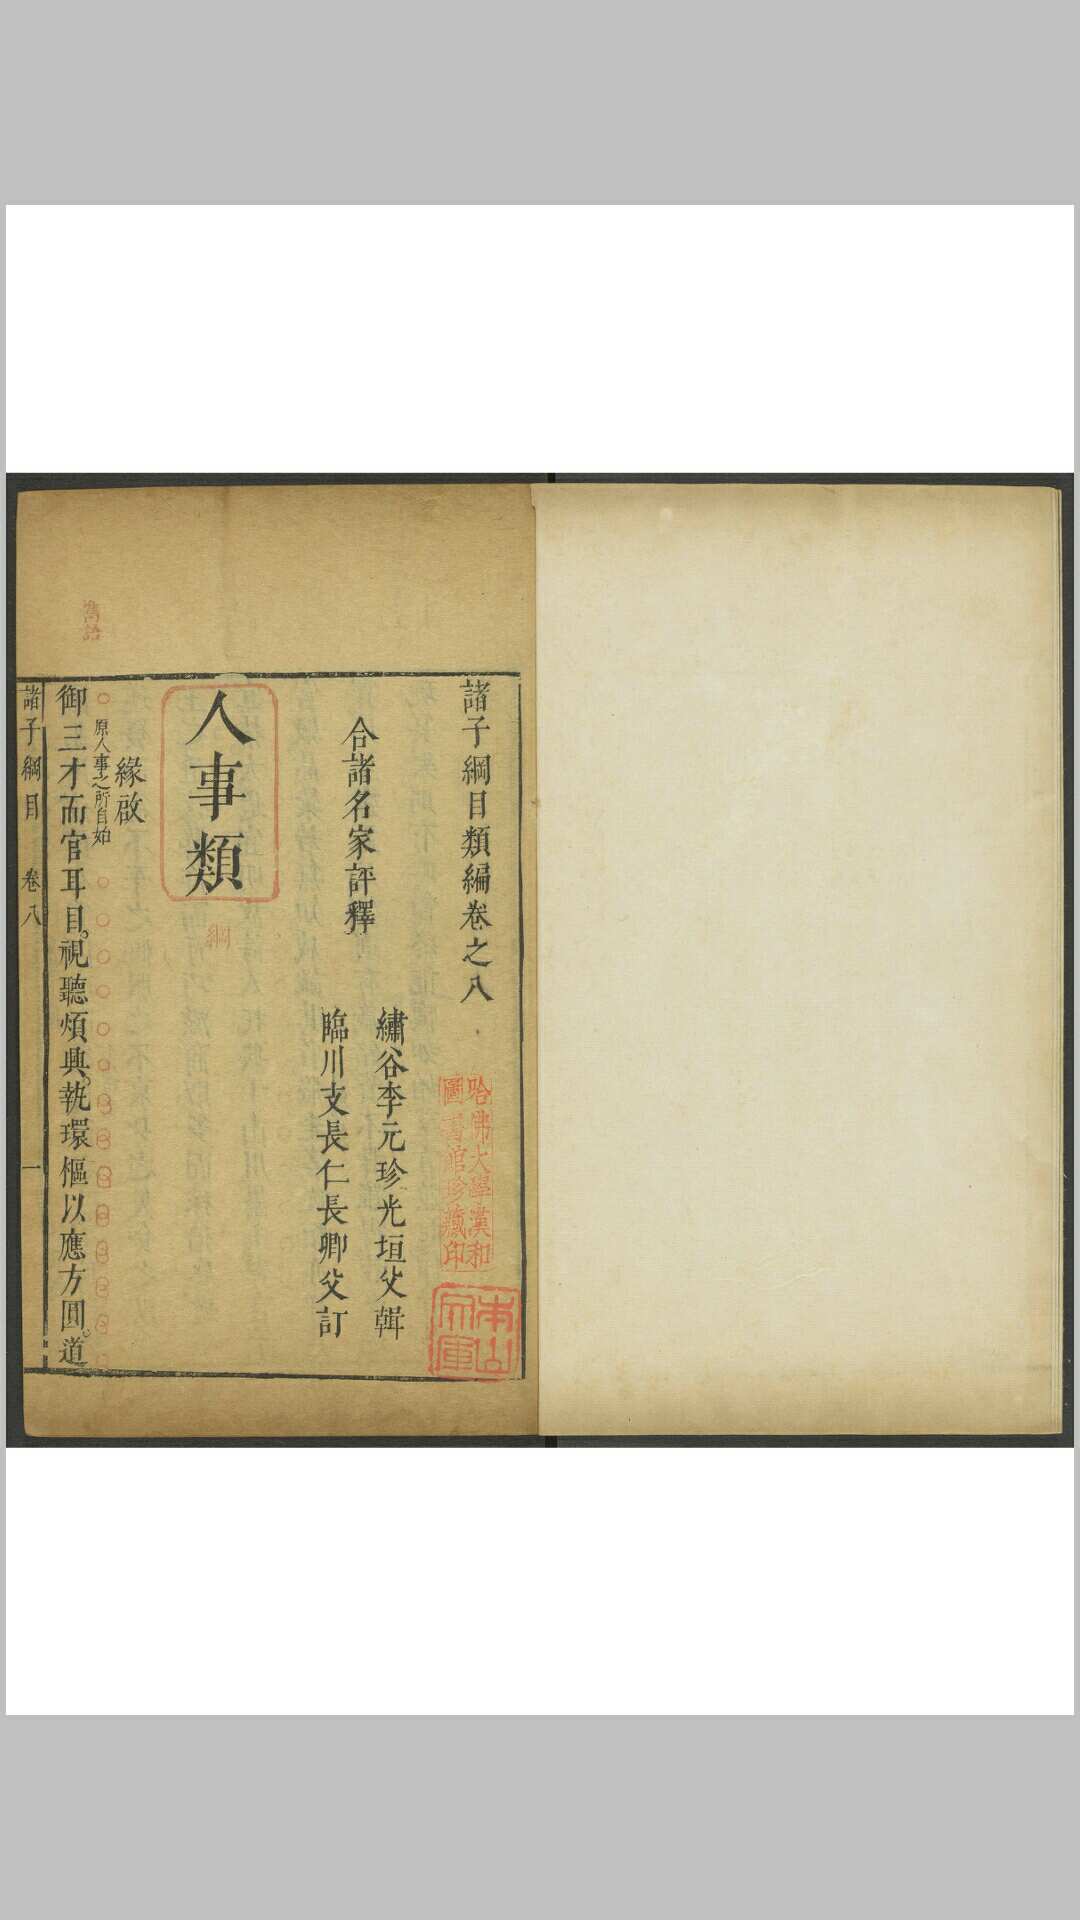 諸子綱目類編卷之八
合諸名家評釋
繡谷李元珍光垣父輯
臨川支長仁長卿父訂
哈佛大學漢和
圖書館珍藏印
人事類
綱
緣啟
原人事之所自始
御三才而官耳目。視聽煩興。執環樞以應方圓。道
諸子綱目 卷八 一